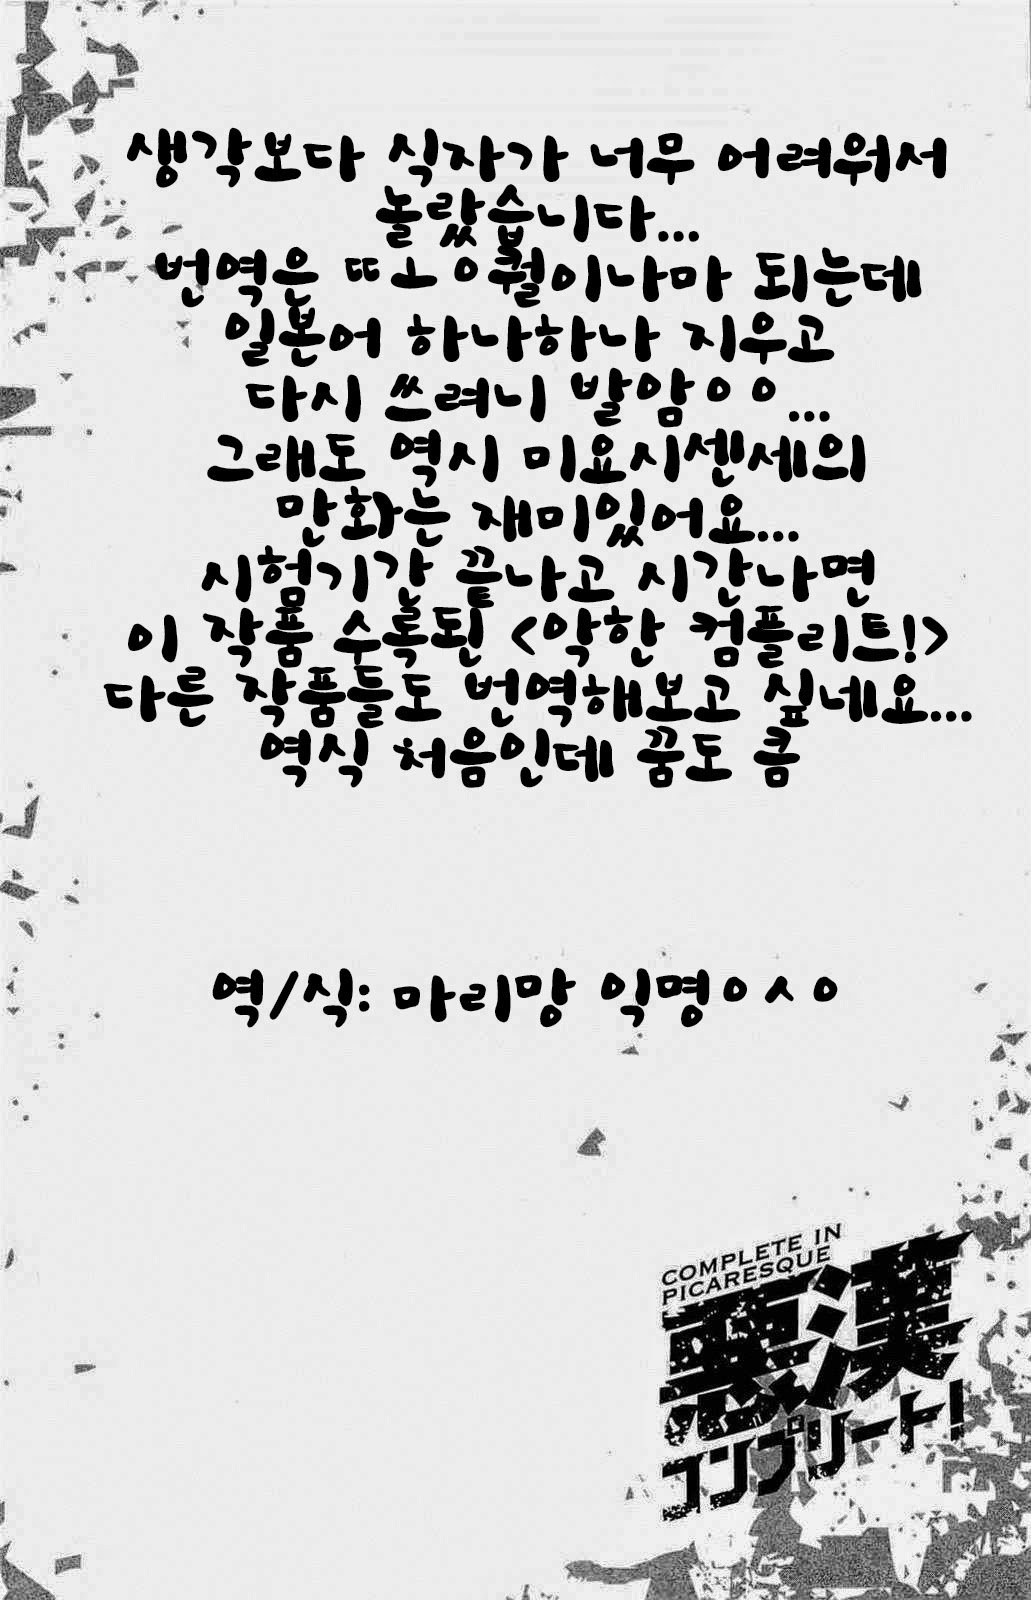 생각보다 식자가 너무 어려워서
놀랐습니다...
번역은 ㄸㅗㅇ퀄이나마 되는데
일본어 하나하나 지우고
다시 쓰려니 발암ㅇㅇ...
그래도 역시 미요시센세의
만화는 재미있어요...
시험기간 끝나고 시간나면
이 작품 수록된 <악한 컴플리트!>
다른 작품들도 번역해보고 싶네요...
역식 처음인데 꿈도 큼
역/식: 마리망 익명ㅇㅅㅇ
COMPLETE IN
PICARESQUE
悪漢
コンプリート!